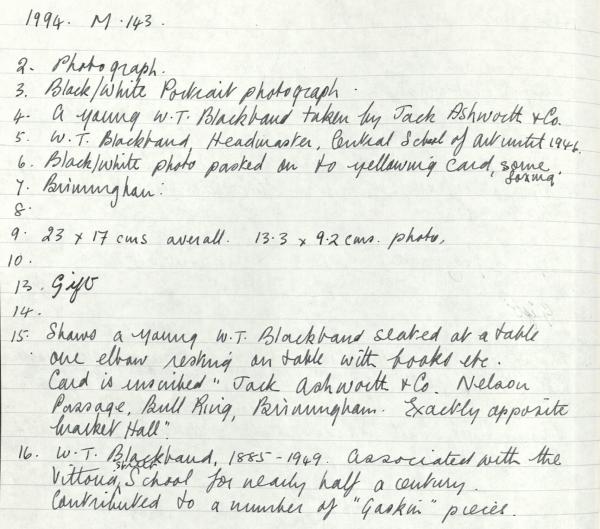 1994. M.143.
2. Photograph.
3. Black/White Portrait photograph.
4. A young W.T. Blackband taken by Jack Ashworth & Co.
5. W.T. Blackband, Headmaster, Central School of Art until 1946.
6. Black/white photo pasted on to yellowing card, some foxing.
7. Birmingham.
8.
9. 23 x 17 cms overall. 13.3 x 9.2 cms. photo.
10.
13. Gift
14.
15. Shows a young W.T. Blackband seated at a table
one elbow resting on table with books etc.
Card is inscribed "Jack Ashworth & Co. Nelson
Passage, Bull Ring, Birmingham. Exactly opposite
Market Hall".
16. W.T. Blackband, 1885-1949. Associated with the
Vittoria Street School for nearly half a century.
Contributed to a number of "Gaskin" pieces.